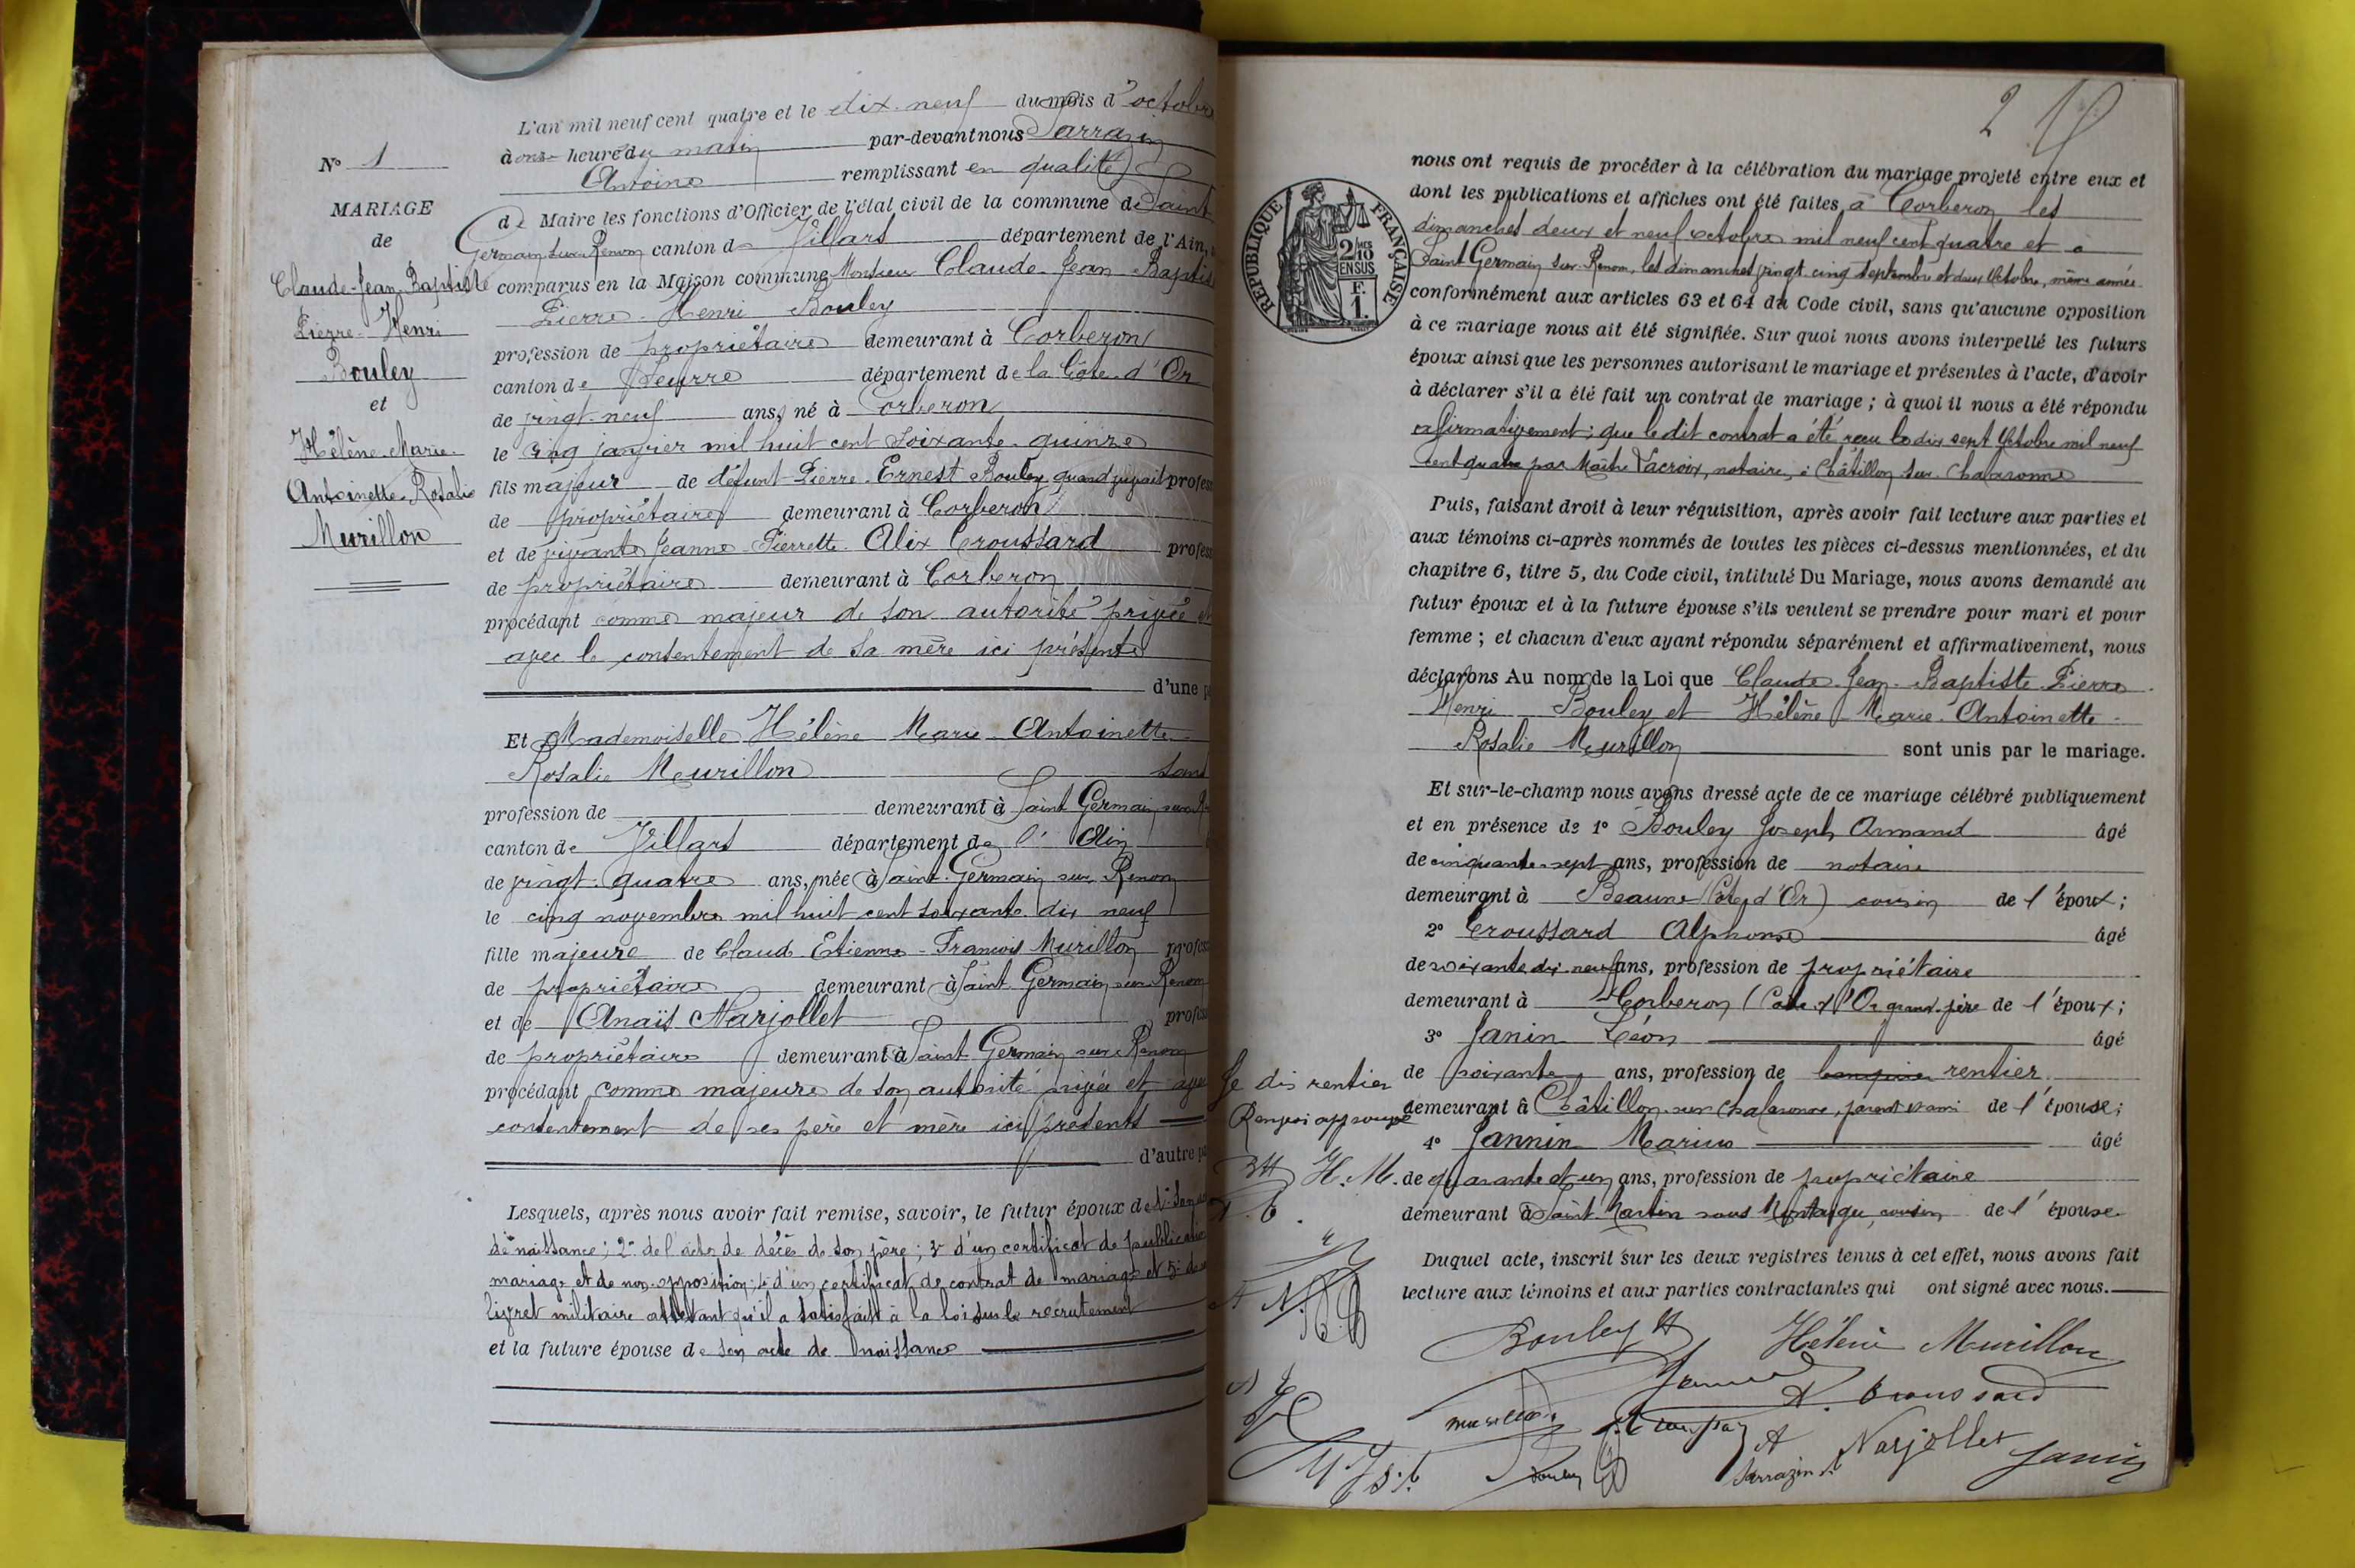 N° 1
MARIAGE
de
Claude-Jean-Baptiste
Pierre-Henri
Bouley
et
Hélène-Marie-
Antoinette-Rosalie
Murillon
L'an mil neuf cent quatre et le dix-neuf du mois d'octobre
à onze heure du matin par-devant nous Sarrazin
Antoine remplissant en qualité
de Maire les fonctions d'Officier de l'état civil de la commune de Saint
Germain sur Renon canton de Villars département de l'Ain,
comparus en la Maison commune Monsieur Claude-Jean-Baptis
Pierre-Henri Bouley
profession de propriétaire demeurant à Corberon
canton de Seurre département de la Côte-d'Or
de vingt-neuf ans, né à Corberon
le cinq janvier mil huit cent soixante-quinze
fils majeur de défunt Pierre-Ernest Bouley quand vivait profess
de propriétaire demeurant à Corberon
et de vivante Jeanne-Pierrette-Alix Croussard profess
de propriétaire demeurant à Corberon
procédant comme majeur de son autorité privée et
avec le consentement de sa mère ici présente
d'une p
Et Mademoiselle Hélène Marie-Antoinette-
Rosalie Murillon sans
profession de demeurant à Saint Germain sur R
canton de Villars département de l'Ain
de vingt-quatre ans, née à Saint-Germain sur Renon
le cinq novembre mil huit cent soixante dix neuf
fille majeure de Claude Etienne-François Murillon profess
de propriétaire demeurant à Saint Germain sur Renon
et de Anaïs Narjollet profess
de propriétaire demeurant à Saint Germain sur Renon
procédant comme majeure de son autorité privée et avec
consentement de ses père et mère ici présents
d'autre p
Lesquels, après nous avoir fait remise, savoir, le futur époux de 1°
de naissance; 2° de l'acte de décès de son père; 3° d'un certificat de publication
mariage et de non-opposition; 4° d'un certificat de contrat de mariage et 5° de
livret militaire attestant qu'il a satisfait à la loi sur le recrutement
et la future épouse de son acte de naissance
2
RÉPUBLIQUE FRANÇAISE
2/10
EN SUS
F.
1.
nous ont requis de procéder à la célébration du mariage projeté entre eux et
dont les publications et affiches ont été faites à Corberon les
dimanches deux et neuf octobre mil neuf cent quatre et à
Saint Germain sur-Renon, les dimanches vingt-cinq septembre et deux octobre, même année
conformément aux articles 63 et 64 du Code civil, sans qu'aucune opposition
à ce mariage nous ait été signifiée. Sur quoi nous avons interpellé les futurs
époux ainsi que les personnes autorisant le mariage et présentes à l'acte, d'avoir
à déclarer s'il a été fait un contrat de mariage ; à quoi il nous a été répondu
affirmativement; que le dit contrat a été reçu le dix sept octobre mil neuf
cent quatre par Maître Lacroix, notaire, à Châtillon sur-Chalaronne
Puis, faisant droit à leur réquisition, après avoir fait lecture aux parties et
aux témoins ci-après nommés de toutes les pièces ci-dessus mentionnées, et du
chapitre 6, titre 5, du Code civil, intitulé Du Mariage, nous avons demandé au
futur époux et à la future épouse s'ils veulent se prendre pour mari et pour
femme ; et chacun d'eux ayant répondu séparément et affirmativement, nous
déclarons Au nom de la Loi que Claude-Jean-Baptiste-Pierre-
Henri Bouley et Hélène Marie-Antoinette-
Rosalie Murillon sont unis par le mariage.
Et sur-le-champ nous avons dressé acte de ce mariage célébré publiquement
et en présence de 1° Bouley Joseph Armand âgé
de cinquante-sept ans, profession de notaire
demeurant à Beaune (Côte d'Or) cousin de l'époux;
2° Croussard Alphonse âgé
de soixante dix-neuf ans, profession de propriétaire
demeurant à Corberon (Côte d'Or grand-père de l'époux;
3° Janin Léon âgé
de soixante ans, profession de rentier
demeurant à Châtillon-sur-Chalaronne, parent et ami de l'épouse;
4° Jannin Marius âgé
de quarante et un ans, profession de propriétaire
demeurant à Saint Martin sous Montaigu, cousin de l'épouse
Je dis rentier
Renvoi approuvé
BH H.M.
Duquel acte, inscrit sur les deux registres tenus à cet effet, nous avons fait
lecture aux témoins et aux parties contractantes qui ont signé avec nous.
Bouley H Hélène Murillon
A. Croussard
Murillon
A Narjollet Janin
Bouley Sarrazin A